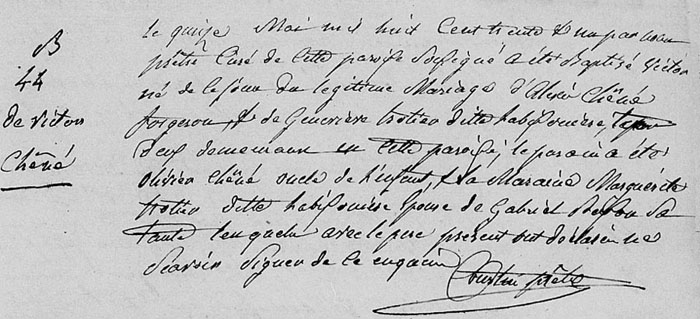 B
44
de victor
Chêné
Le quinze Mai mil huit cent trente & un par nous
prêtre Curé de cette paroisse soussigné a été Baptisé victor
né de ce jour du legitime Mariage d'Alexis Chêné
forgeron, & de Geneviève trotier ditte habifouière,
deux demeurant en cette paroisse; le parain a été
olivier Chêné oncle de l'enfant, & la Maraine Marguerite
trotier ditte épouse de Gabriel sa
tante lesquels avec le pere present ont declaré ne
Scavoir Signer de ce enquis
prêtre